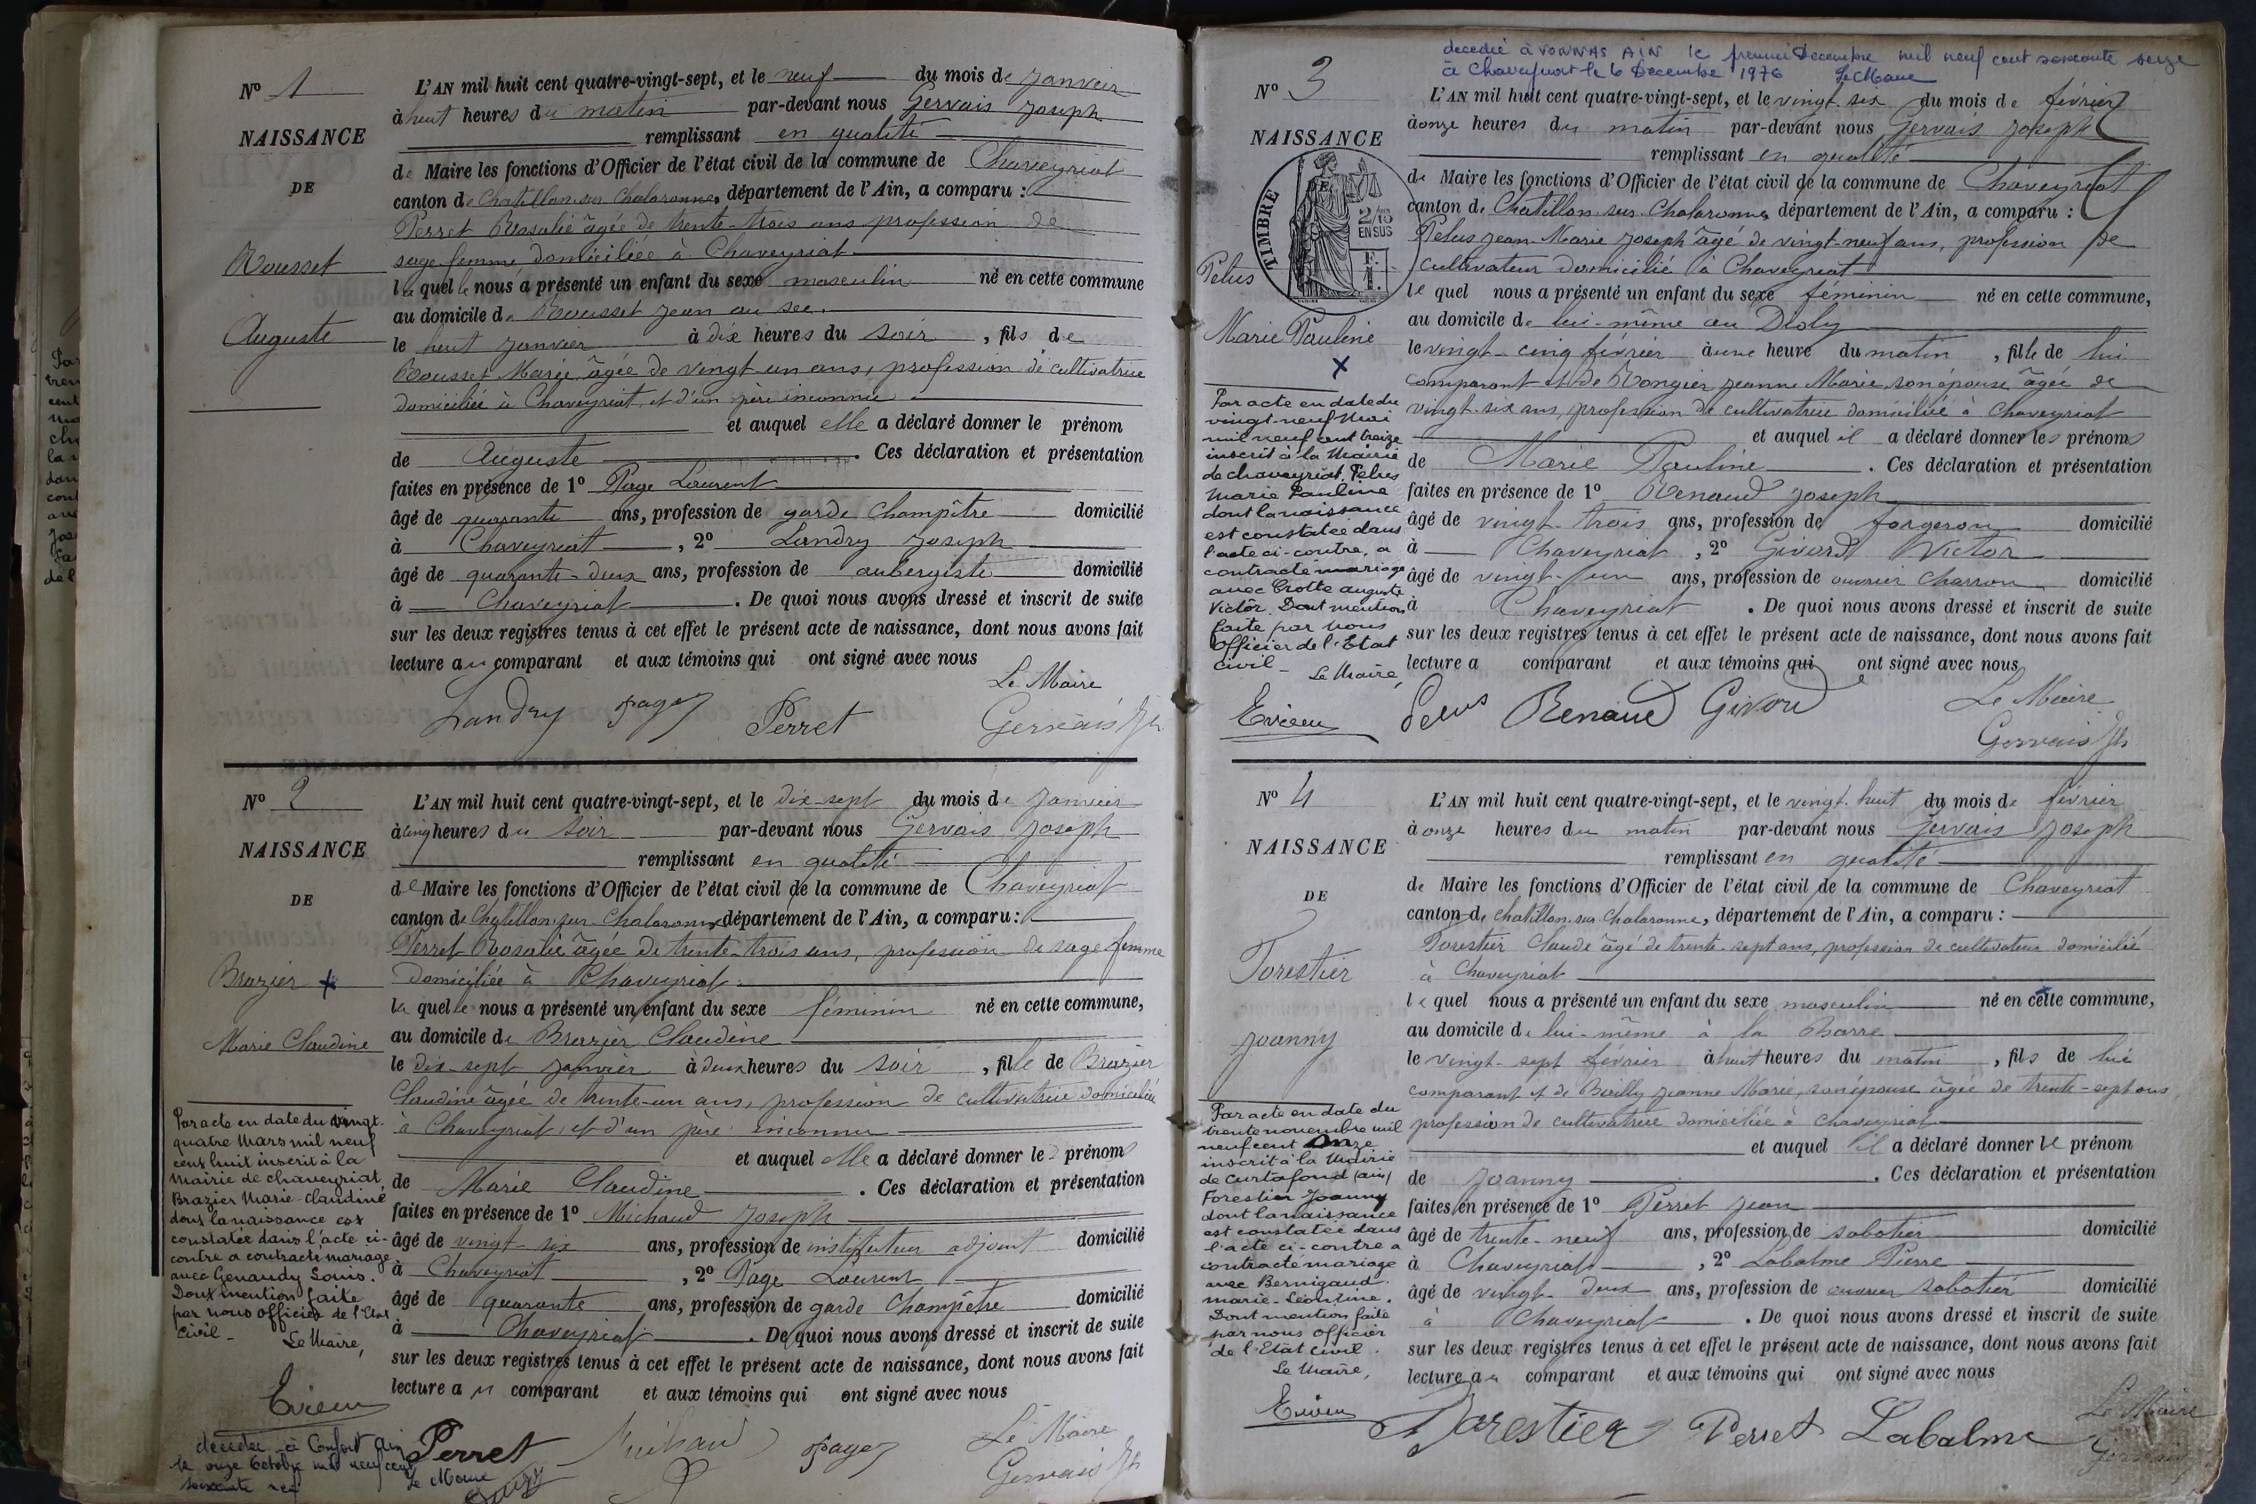 Nº 1
NAISSANCE
DE
Rousset
Auguste
L'AN mil huit cent quatre-vingt-sept, et le neuf du mois de janvier
à huit heures du matin par-devant nous Gervais Joseph
remplissant en qualité
de Maire les fonctions d'Officier de l'état civil de la commune de Chaveyriat
canton de Chatillon sur Chalaronne, département de l'Ain, a comparu :
Perret Rosalie âgée de trente-trois ans profession de
sage femme domiciliée à Chaveyriat
laquelle nous a présenté un enfant du sexe masculin né en cette commune
au domicile de Rousset Jean au sec.
le huit janvier à dix heures du soir, fils de
Rousset Marie âgée de vingt un ans, profession de cultivatrice
domiciliée à Chaveyriat et d'un père inconnu
et auquel elle a déclaré donner le prénom
de Auguste. Ces déclaration et présentation
faites en présence de 1º Page Laurent
âgé de quarante ans, profession de garde champêtre domicilié
à Chaveyriat, 2º Landry Joseph
âgé de quarante-deux ans, profession de aubergiste domicilié
à Chaveyriat. De quoi nous avons dressé et inscrit de suite
sur les deux registres tenus à cet effet le présent acte de naissance, dont nous avons fait
lecture au comparant et aux témoins qui ont signé avec nous
Le Maire
Landry Page Perret Gervais Jh
Nº 2
NAISSANCE
DE
Brazier
Marie Claudine
L'AN mil huit cent quatre-vingt-sept, et le dix-sept du mois de janvier
à cinq heures du soir par-devant nous Gervais Joseph
remplissant en qualité
de Maire les fonctions d'Officier de l'état civil de la commune de Chaveyriat
canton de Chatillon-sur-Chalaronne département de l'Ain, a comparu :
Perret Rosalie âgée de trente-trois ans, profession de sage femme
domiciliée à Chaveyriat
laquelle nous a présenté un enfant du sexe féminin né en cette commune,
au domicile de Brazier Claudine
le dix-sept janvier à deux heures du soir, fille de Brazier
Claudine âgée de trente-un ans, profession de cultivatrice domiciliée
à Chaveyriat, et d'un père inconnu
et auquel elle a déclaré donner les prénoms
de Marie Claudine. Ces déclaration et présentation
faites en présence de 1º Michaud Joseph
âgé de vingt-six ans, profession de instituteur adjoint domicilié
à Chaveyriat, 2º Page Laurent
âgé de quarante ans, profession de garde champêtre domicilié
à Chaveyriat. De quoi nous avons dressé et inscrit de suite
sur les deux registres tenus à cet effet le présent acte de naissance, dont nous avons fait
lecture au comparant et aux témoins qui ont signé avec nous
Le Maire
Perret Michaud Page Gervais Jh
Par acte en date du vingt-
quatre Mars mil neuf
cent huit inscrit à la
Mairie de chaveyriat,
Brazier Marie-Claudine
dont la naissance est
constatée dans l'acte ci-
contre a contracté mariage
avec Genaudy Louis.
Dont mention faite
par nous officier de l'Etat
civil -
Le Maire,
décédée à Confort Ain
le onze Octobre mil neuf cent
soixante
Le Maire
décédée à VONNAS AIN le premier Decembre mil neuf cent soixante seize
à Chaveyriat le 6 Decembre 1976 Le Maire
Nº 3
NAISSANCE
TIMBRE
2/10
EN SUS
Pelus
Marie Pauline
L'AN mil huit cent quatre-vingt-sept, et le vingt-six du mois de février
à onze heures du matin par-devant nous Gervais Joseph
remplissant en qualité
de Maire les fonctions d'Officier de l'état civil de la commune de Chaveyriat
canton de Chatillon sur Chalaronne département de l'Ain, a comparu :
Pelus Jean-Marie Joseph âgé de vingt-neuf ans, profession de
cultivateur domicilié à Chaveyriat
lequel nous a présenté un enfant du sexe féminin né en cette commune,
au domicile de lui-même au
le vingt-cinq février à une heure du matin, fille de lui
comparant et de Rongier Jeanne Marie, son épouse âgée de
vingt-six ans, profession de cultivatrice domiciliée à Chaveyriat
et auquel il a déclaré donner les prénoms
de Marie Pauline. Ces déclaration et présentation
faites en présence de 1º Renaud Joseph
âgé de vingt-trois ans, profession de forgeron domicilié
à Chaveyriat, 2º Givord Victor
âgé de vingt-un ans, profession de ouvrier charron domicilié
à Chaveyriat. De quoi nous avons dressé et inscrit de suite
sur les deux registres tenus à cet effet le présent acte de naissance, dont nous avons fait
lecture a comparant et aux témoins qui ont signé avec nous
Le Maire
Pelus Renaud Givord Gervais Jh
Par acte en date du
vingt-neuf Mai
mil neuf cent treize
inscrit à la Mairie
de chaveyriat, Pelus
Marie Pauline
dont la naissance
est constatée dans
l'acte ci-contre, a
contracté mariage
avec Crotte auguste
Victor. Dont mention
faite par nous
Officier de l'Etat
civil -
Le Maire,
Nº 4
NAISSANCE
DE
Forestier
Joanny
L'AN mil huit cent quatre-vingt-sept, et le vingt-huit du mois de février
à onze heures du matin par-devant nous Gervais Joseph
remplissant en qualité
de Maire les fonctions d'Officier de l'état civil de la commune de Chaveyriat
canton de chatillon-sur-Chalaronne, département de l'Ain, a comparu :
Forestier Claude âgé de trente-sept ans, profession de cultivateur domicilié
à Chaveyriat
lequel nous a présenté un enfant du sexe masculin né en cette commune,
au domicile de lui-même à la Barre
le vingt-sept février à huit heures du matin, fils de lui
comparant et de Bailly Jeanne Marie, son épouse âgée de trente-sept ans,
profession de cultivatrice domiciliée à Chaveyriat
et auquel il a déclaré donner le prénom
de Joanny. Ces déclaration et présentation
faites en présence de 1º Perret Jean
âgé de trente-neuf ans, profession de sabotier domicilié
à Chaveyriat, 2º Labalme Pierre
âgé de vingt-deux ans, profession de ouvrier sabotier domicilié
à Chaveyriat. De quoi nous avons dressé et inscrit de suite
sur les deux registres tenus à cet effet le présent acte de naissance, dont nous avons fait
lecture au comparant et aux témoins qui ont signé avec nous
Le Maire
Forestier Perret Labalme Gervais
Par acte en date du
trente novembre mil
neuf cent onze
inscrit à la Mairie
de curtafond (ain)
Forestier Joanny
dont la naissance
est constatée dans
l'acte ci-contre a
contracté mariage
avec Bernigaud
marie-Léontine.
Dont mention faite
par nous officier
de l'Etat civil.
Le Maire,